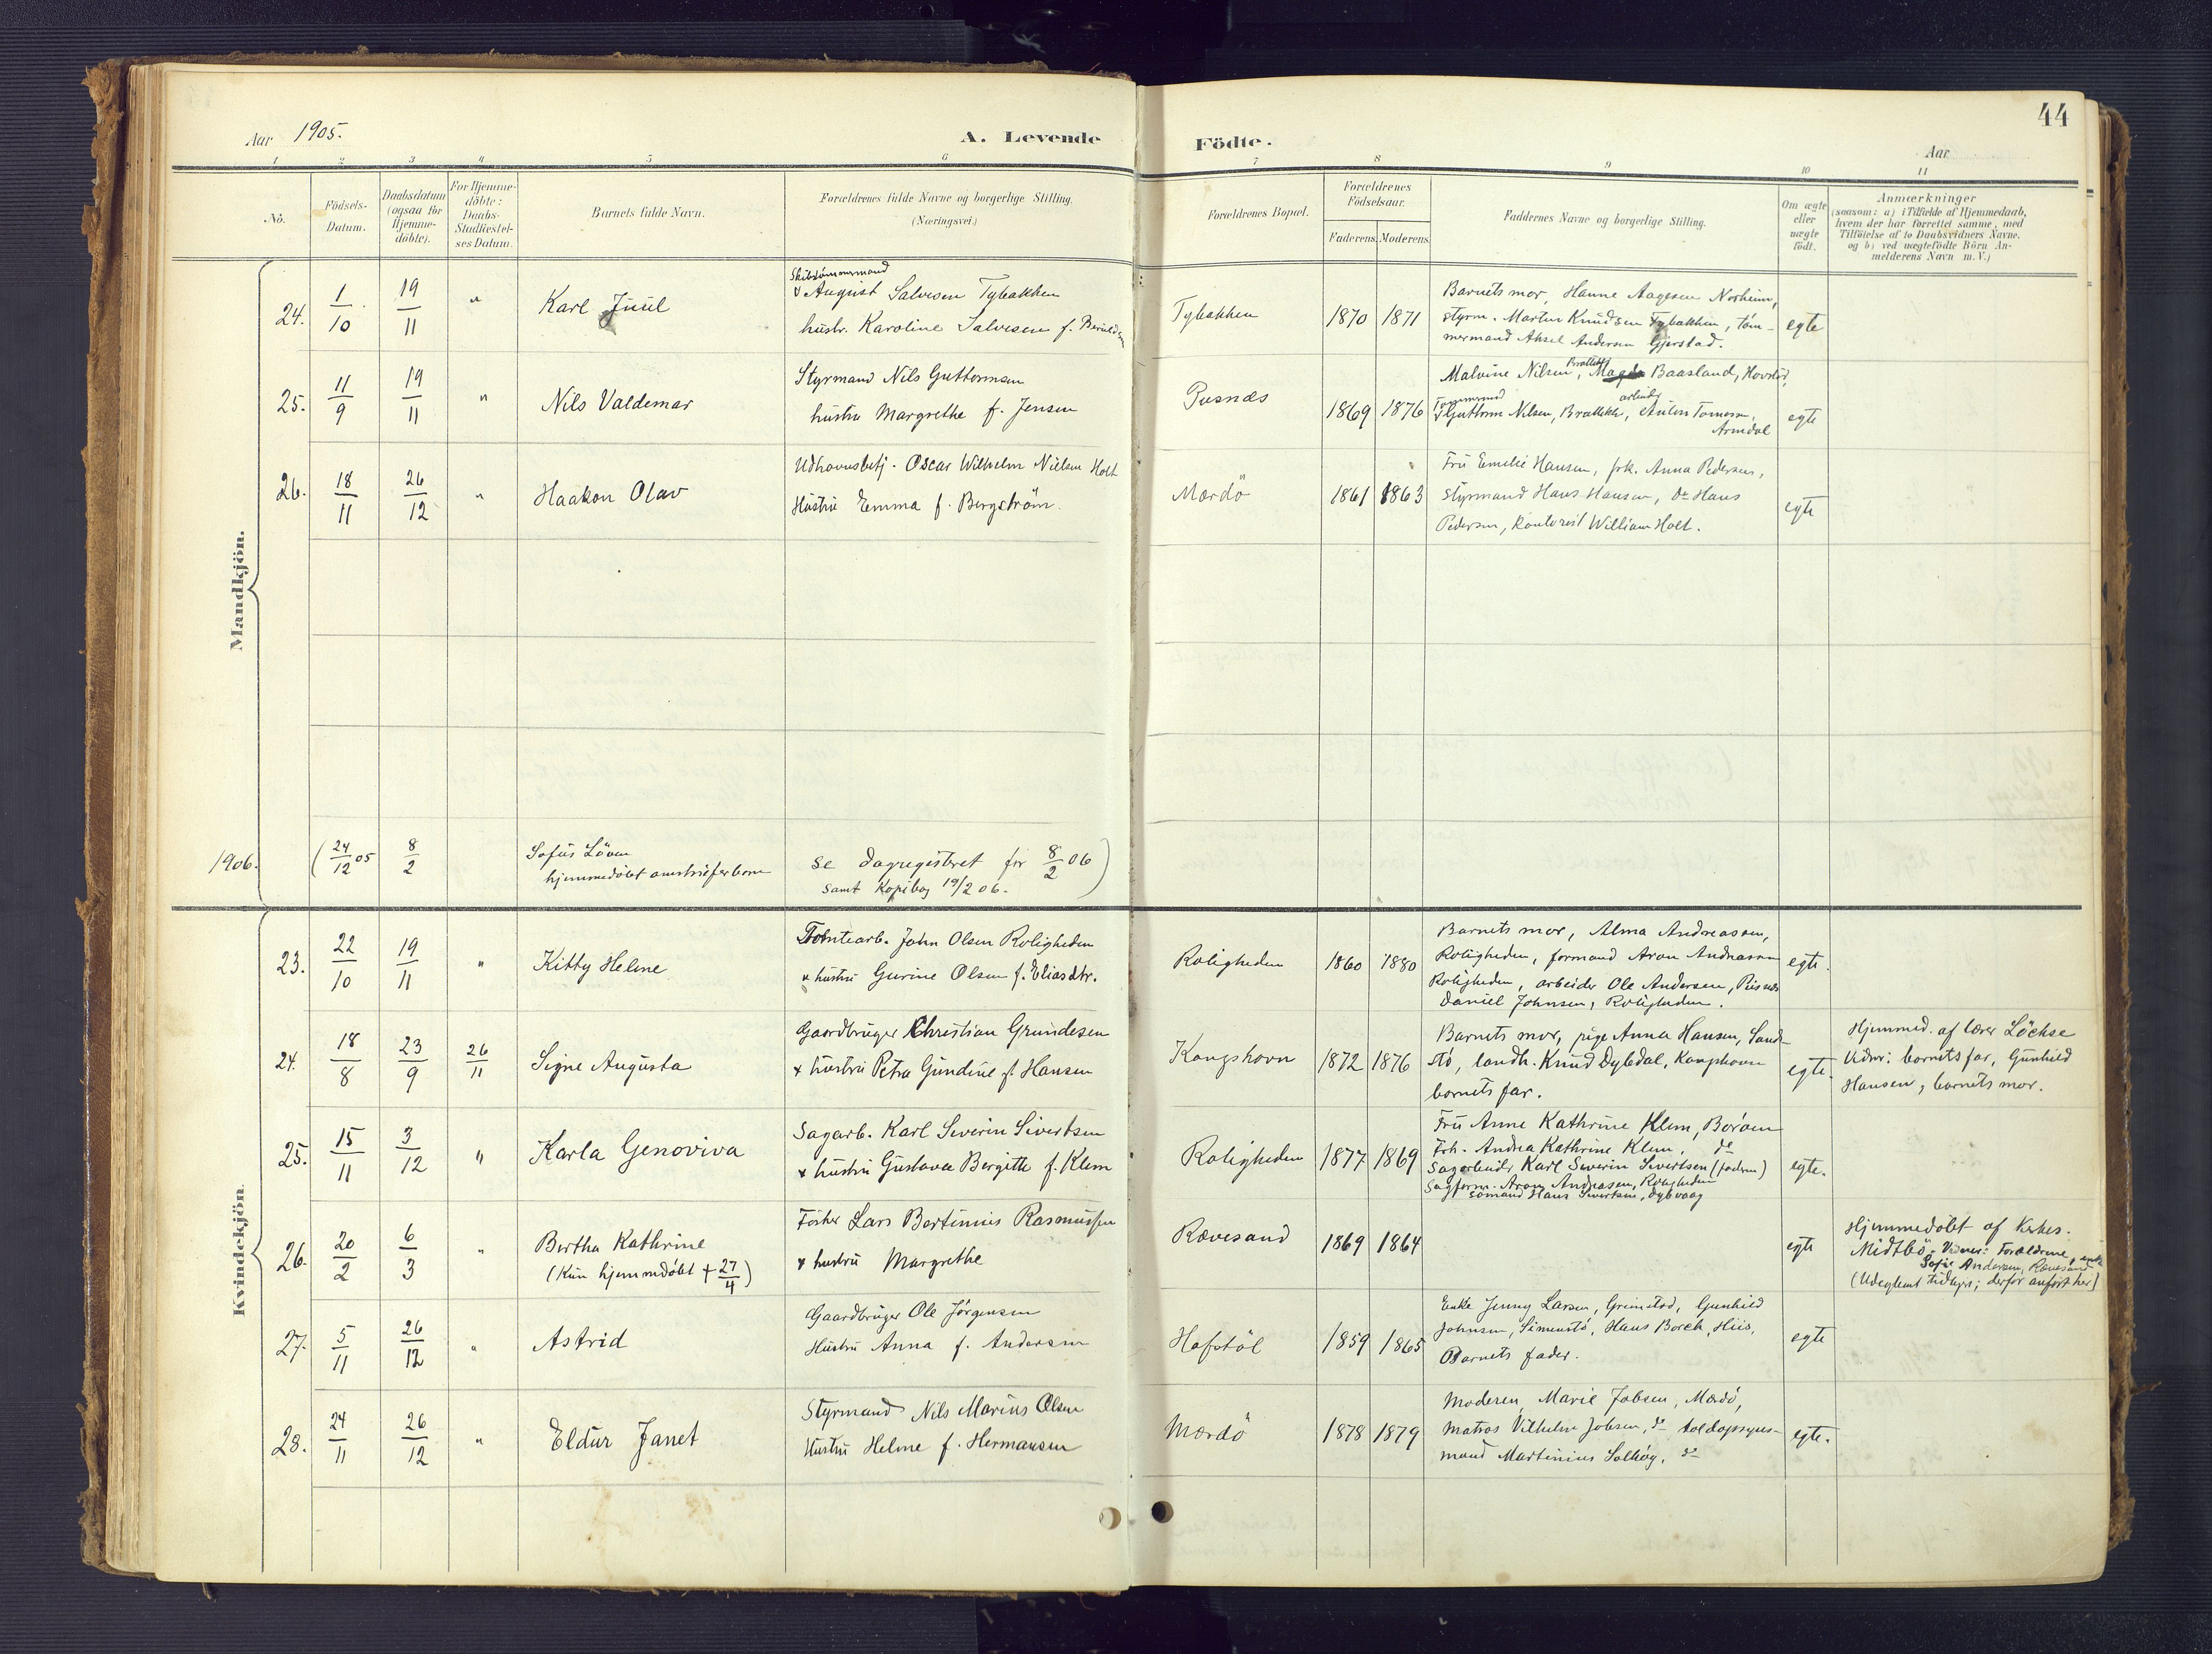 44
Aar 1905.
A. Levende
Födte.
Aar
1 2 3 4 5 6 7 8 9 10 11
No.
Födsels-
Datum.
Daabsdatum
(ogsaa for
Hjemme-
döbte).
For Hjemme-
döbte:
Daabs-
Stadfæstel-
ses Datum.
Barnets fulde Navn.
Forældrenes fulde Navne og borgerlige Stilling.
(Næringsvei.)
Forældrenes Bopæl.
Forældrenes
Födselsaar.
Faderens. Moderens.
Faddernes Navne og borgerlige Stilling.
Om ægte
eller
uægte
födt.
Anmærkninger
(saasom: a) i Tilfælde af Hjemmedaab,
hvem der har forrettet samme, med
Tilföielse af to Daabsvidners Navne.
og b) ved uægtefödte Börn An-
melderens Navn m. V.)
Mandkjön.
24.
1/10
19/11
"
Karl Juul
Skibstømmermand
August Salvesen Tybakken
hustr. Karoline Salvesen f.
Tybakken
1870
1871
Barnets mor, Hanne Aagesen Norheim,
styrm. Martin Knudsen Tybakken, töm-
mermand Aksel Andersen Gjerstad.
egte
25.
11/9
19/11
"
Nils Valdemar
Styrmand Nils Guttormsen
hustru Margrethe f. Jensen
Pusnæs
1869
1876
Malvine Nilsen, Baasland,
Guttorm Nilsen, arbeider Anton
Arendal
egte
26.
18/11
26/12
"
Haakon Olav
Oscar Wilhelm Nielsen Holt
Hustru Emma f. Bergström.
Mærdö
1861
1863
Fru Emilie Hansen, frk. Anna Pedersen,
styrmand Hans Hansen, do Hans
Pedersen, Kontorist William Holt.
egte
1906.
(24/12 05
8/2
Sofus Löven
hjemmedöbt
se dagregistret for 8/2 06)
samt Kopibog 19/2 06.
Kvindekjön.
23.
22/10
19/11
"
Kitty Helene
Tomtearb. John Olsen Roligheden
& hustru Gurine Olsen f. Eliasdtr.
Roligheden
1860
1880
Barnets mor, Alma Andreassen,
Roligheden, formand Aron Andreassen
Roligheden, arbeider Ole Andersen, Pusnæs
Daniel Johnsen, Roligheden.
egte.
24.
18/8
23/9
26/11
Signe Augusta
Gaardbruger Christian Grundesen
& hustru Petra Gundine f. Hansen
Kongshavn
1872
1876
Barnets mor, pige Anna Hansen, Sand-
stö, landh. Knud Dybdal, Kongshavn
barnets far.
egte.
Hjemmed. af lærer Löchse
Vidner: barnets far, Gunhild
Hansen, barnets mor.
25.
15/11
3/12
"
Karla Genoviva
Sagarb. Karl Severin Sivertsen
& hustru Gustava Bergitte f. Klem
Roligheden
1877
1869
Fru Anne Kathrine Klem, Boröen
Frk. Andrea Kathrine Klem, do
Sagarbeider Karl Severin Sivertsen (faderen)
Sagform. Aron Andreasen, Roligheden
sömand Hans Sivertsen, Dybvaag
egte.
26.
20/2
6/3
"
Bertha Kathrine
(Kun hjemmedöbt † 27/4)
Fisker Lars Bertinius Rasmussen
& hustru Margrethe
Rævesand
1869
1864
egte
Hjemmedöbt af Kirkes.
Midtbö. Vidner: Forældrene, enke
Sofie Andersen, Rævesand
(Udeglemt tidligere; derfor anfört her)
27.
5/11
26/12
"
Astrid
Gaardbruger Ole Jörgensen
Hustru Anna f. Andersen
Hofstöl
1859
1865
Enke Jenny Larsen, Grimstad, Gunhild
Johnsen, Simenstö, Hans Borch, Hiis,
Barnets fader.
egte
28.
24/11
26/12
"
Eldur Janet
Styrmand Nils Marius Olsen
Hustru Helene f. Hermansen
Mærdö
1878
1879
Moderen, Marie Jobsen, Mærdö,
Matros Vilhelm Jobsen, do toldopsyns-
mand Martinius Solhög, do
egte.